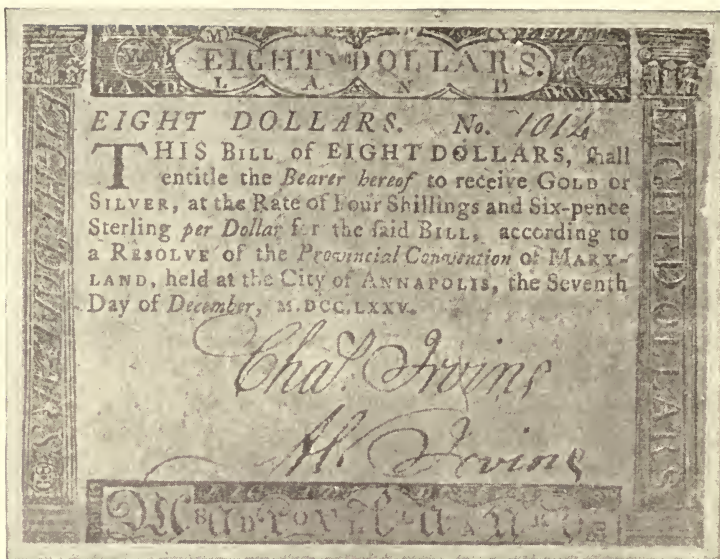 EIGHT DOLLARS.
LAND
EIGHT DOLLARS. No. 1014
THIS BILL of EIGHT DOLLARS, ſhall
entitle the Bearer hereof to receive GOLD or
SILVER, at the Rate of Four Shillings and Six-pence
Sterling per Dollar for the ſaid BILL, according to
a RESOLVE of the Provincial Convention of MARY-
LAND, held at the City of ANNAPOLIS, the Seventh
Day of December, M.DCC.LXXV.
Chaˢ. Irvine
Irvine
EIGHT DOLLARS